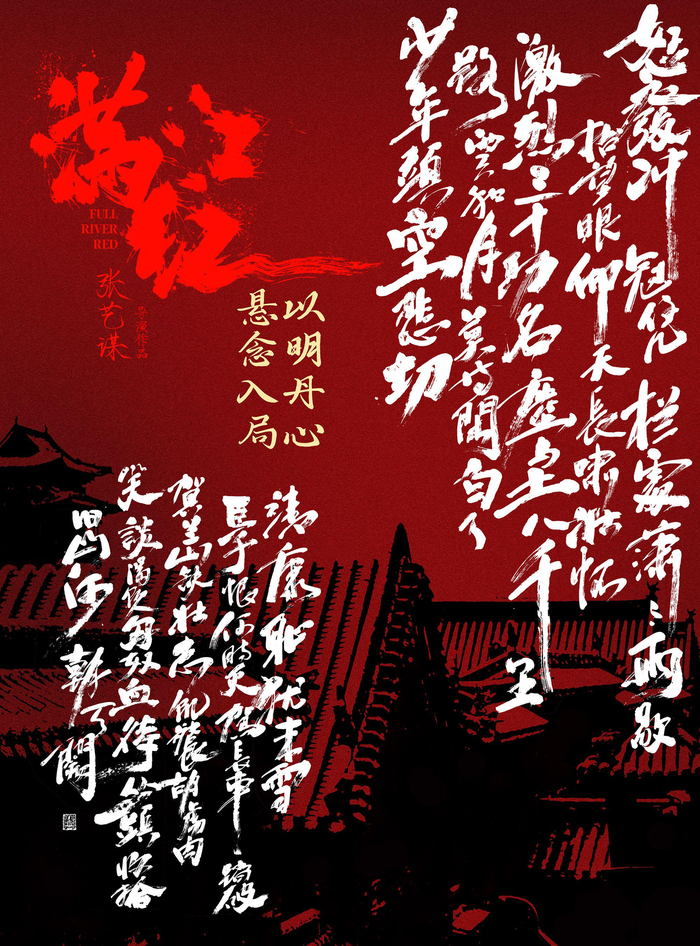 满江红
FULL
RIVER
RED
张艺谋
导演作品
以明丹心
悬念入局
怒發冲冠凭栏處潇〻雨歇
抬望眼仰天長嘯壮怀
激烈三十功名塵土八千里
路雲和月莫等閒白了
少年頭空悲切
靖康耻犹未雪
臣子恨何時灭駕長車踏破
賀兰山缺壮志飢餐胡虏肉
笑談渴飲匈奴血待從頭收拾
旧山河朝天闕